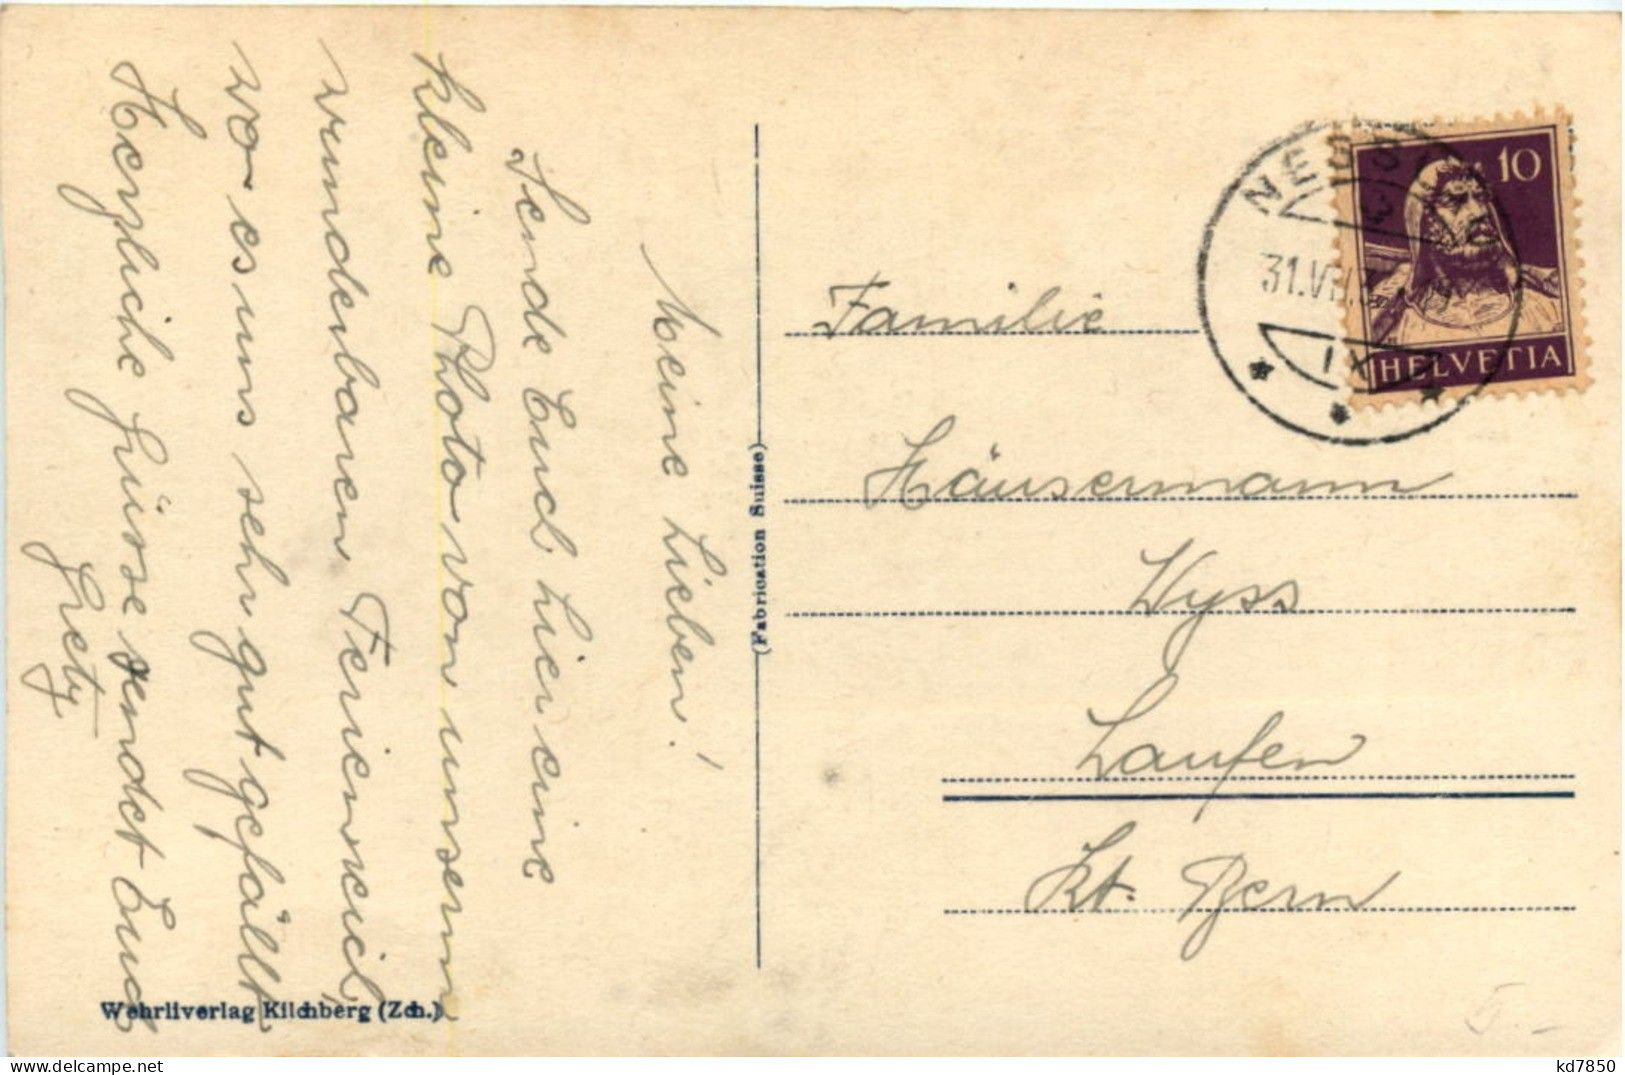 Meine Lieben!
Sende Euch hier eine
kleine Photo von unserm
wunderbaren Ferienweil,
wo es uns sehr gut gefällt
Herzliche Grüsse sendet Euch
Grety
Wehrliverlag Kilchberg (Zch.)
(Fabrication Suisse)
10
HELVETIA
31.VII.3
IX
Familie
Häusermann
Wyss
Laufen
Kt. Bern
5.-
kd7850